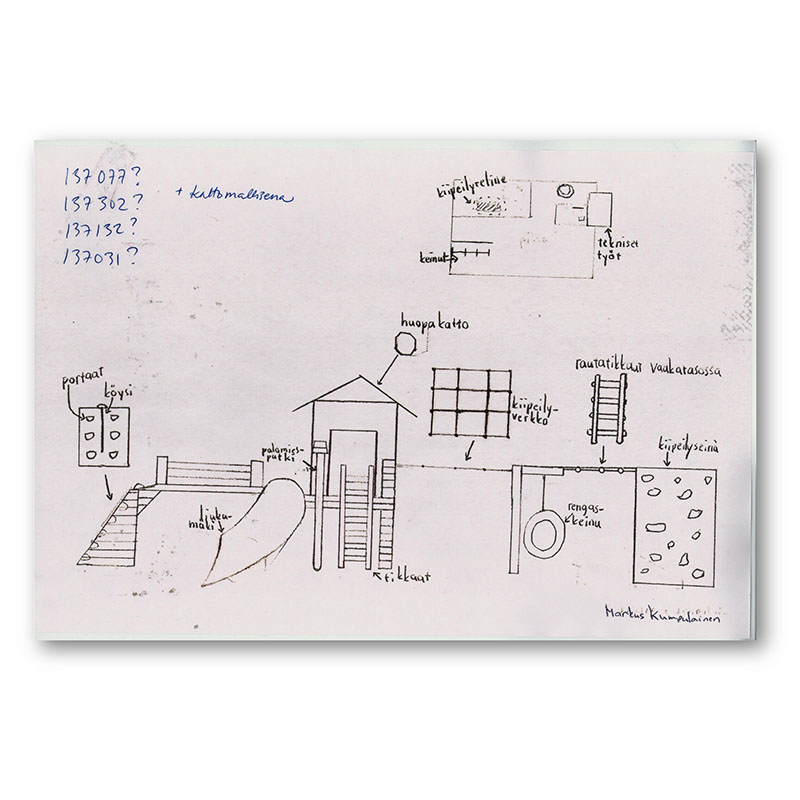 137077?
137302?
137132?
137031?
+ kattomallisena
kiipeilyreline
piha
tekniset
työt
keinut
huopakatto
portaat
köysi
kiipeily-
verkko
rautatikkaat vaakatasossa
kiipeilyseinä
palamies-
putki
liuku-
mäki
rengas-
keinu
tikkaat
Markus Kumpulainen